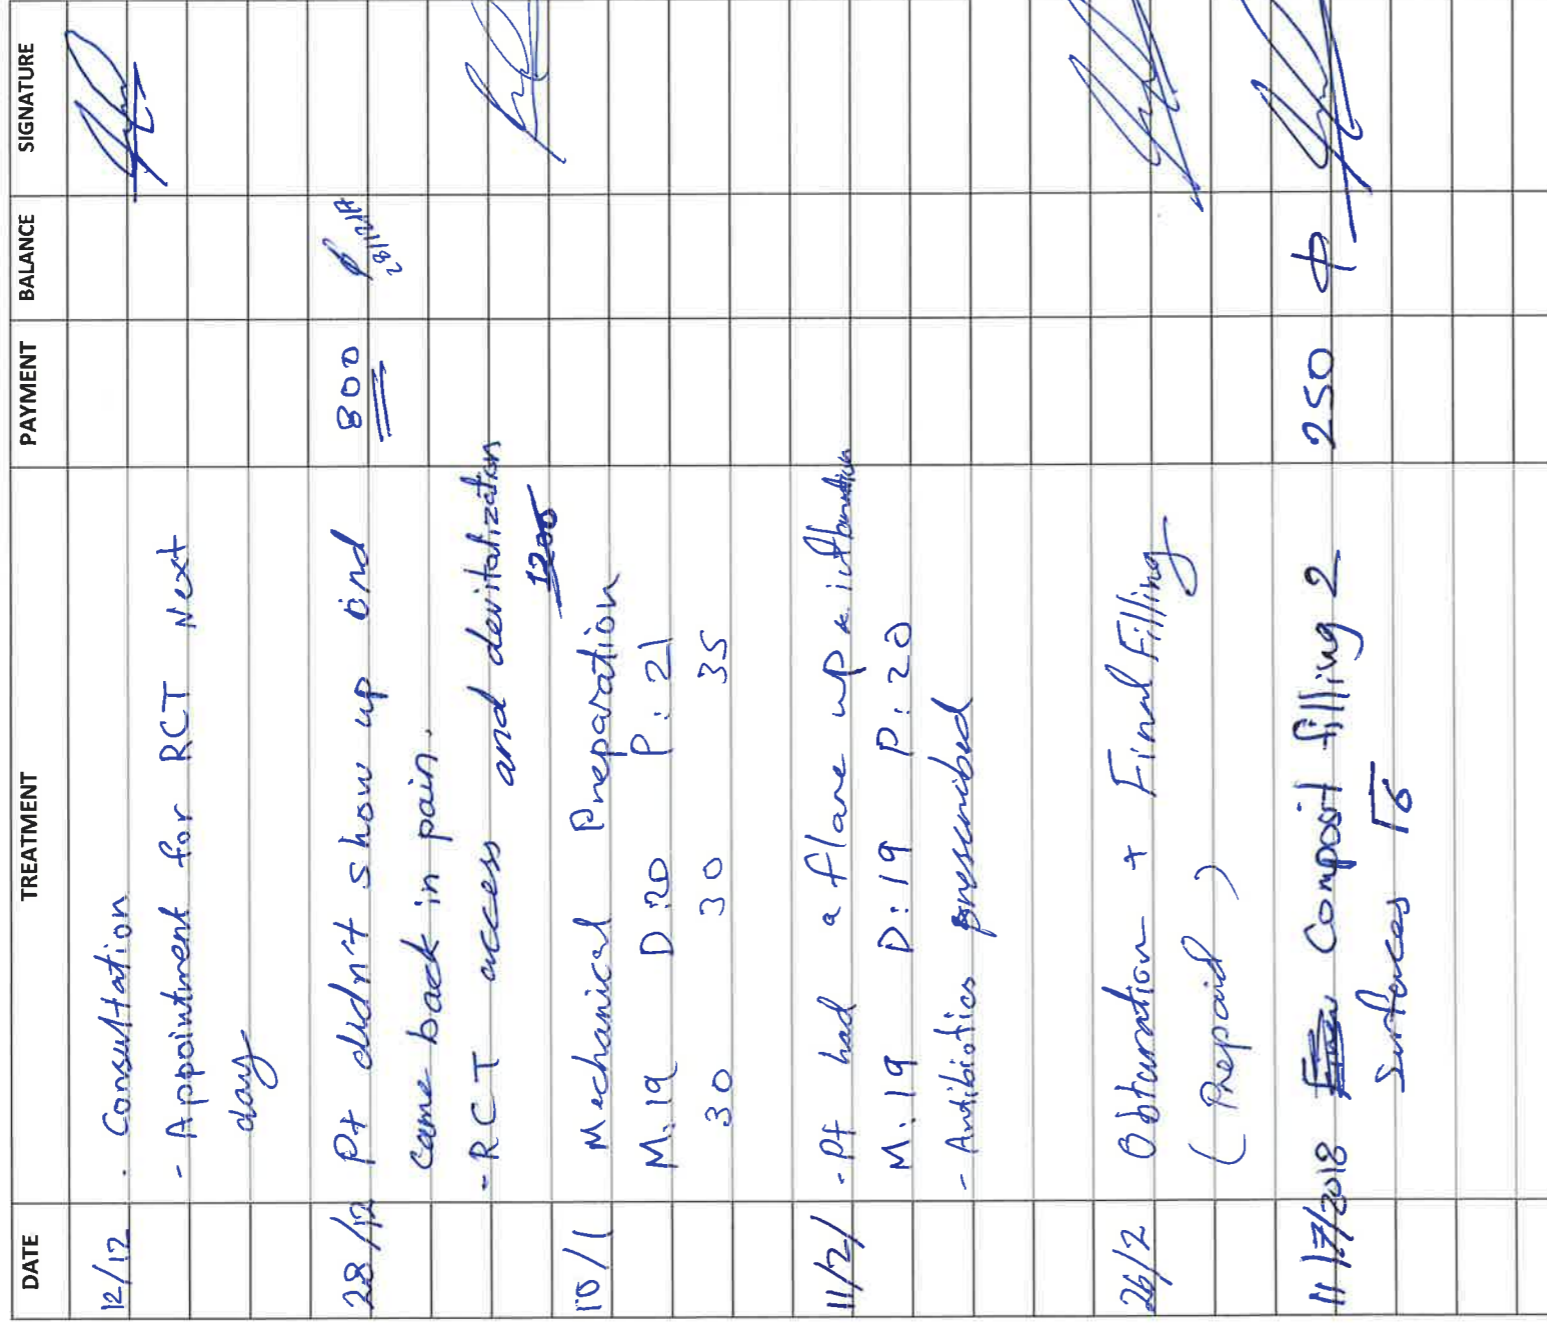 DATE TREATMENT PAYMENT BALANCE SIGNATURE
12/12 . Consultation
- Appointment for RCT Next
day
28/12 Pt didn't show up and 800
came back in pain. 28/12/17
- RCT access and devitalization
1200
10/1 Mechanical Preparation
M: 19 D: 20 P: 21
30 30 35
11/2/ - Pt had a flare up
M: 19 D: 19 P: 20
- Antibiotics prescribed
26/2 Obturation + Final Filling
( Prepaid )
11/7/2018 Composit filling 2 250
Surfaces 6